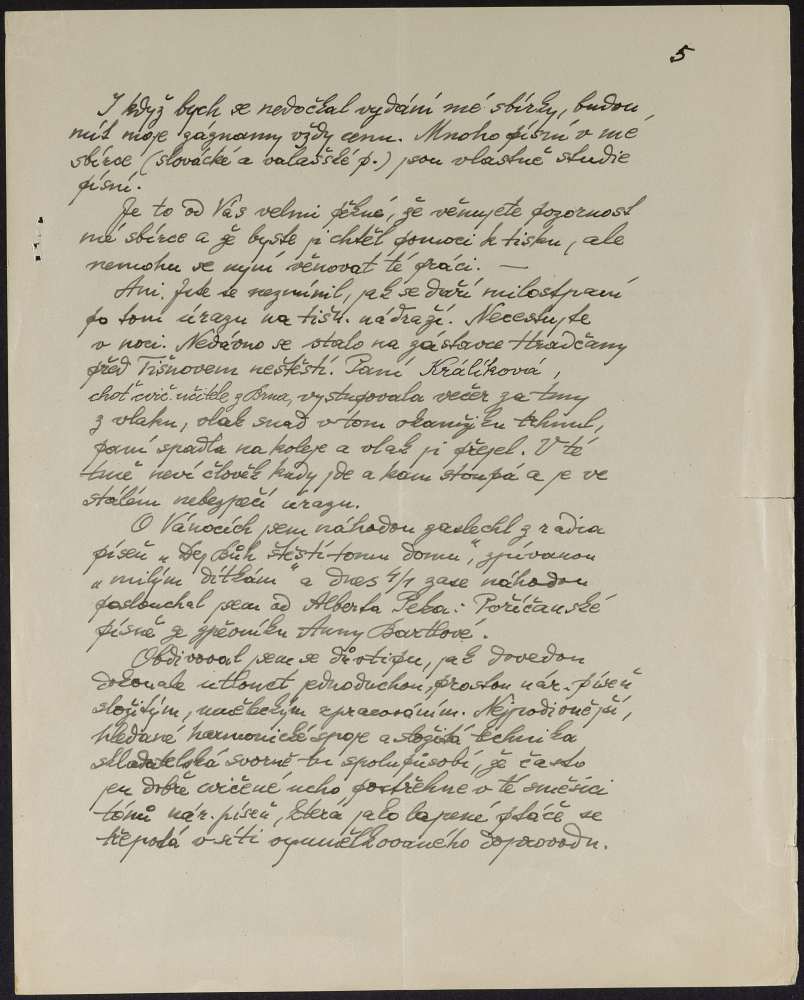 5
I když bych se nedočkal vydání mé sbírky, budou
mít moje záznamy vždy cenu. Mnoho písní v mé
sbírce (slovácké a valašské p.) jsou vlastně studie
písní.
Je to od Vás velmi pěkné, že věnujete pozornost
mé sbírce a že byste ji chtěl pomoci k tisku, ale
nemohu se nyní věnovat té práci. —
Ani jste se nezmínil, jak se daří milostpaní
po tom úrazu na tišn. nádraží. Necestujte
v noci. Nedávno se stalo na zastávce Hradčany
před Tišnovem neštěstí. Paní Králíková,
choť cvič. učitele z Brna, vystupovala večer za tmy
z vlaku, vlak snad v tom okamžiku trhnul,
paní spadla na koleje a vlak ji přejel. V té
tmě neví člověk kudy jde a kam stoupá a je ve
stálém nebezpečí úrazu.
O Vánocích jsem náhodou zaslechl z radia
píseň „Dej Bůh štěstí tomu domu", zpívanou
„milým dítkám" a dnes 4/1 zase náhodou
poslouchal jsem od Alberta Peka: Poříčanské
písně ze zpěvníku Anny Bartlové.
Obdivoval jsem se důvtipu, jak dovedou
dokonale utlouct jednoduchou, prostou nár. píseň
složitým, uměleckým zpracováním. Nejpodivnější,
hledané harmonické spoje a složitá technika
skladatelská svorně tu spolupůsobí, že často
jen dobře cvičené ucho postřehne v té směsici
tónů nár. píseň, která jako lapené ptáče se
třepotá v síti vyumělkovaného doprovodu.